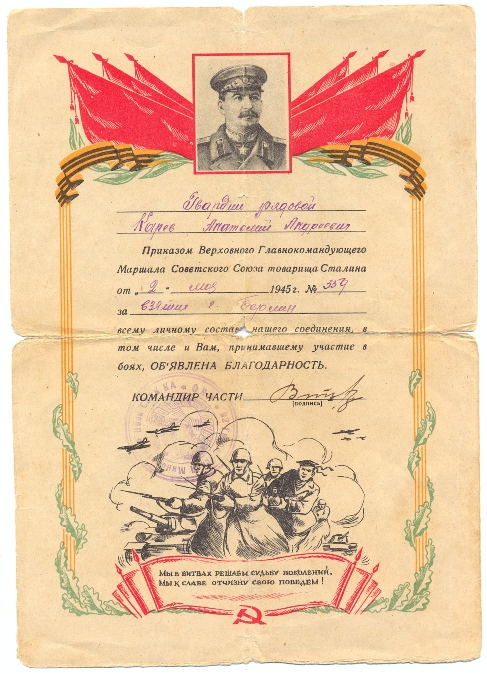 Гвардии рядовой
Карев Анатолий Андреевич
Приказом Верховного Главнокомандующего
Маршала Советского Союза товарища Сталина
от „2“ мая 1945 г. № 359
за взятие г. Берлин
всему личному составу нашего соединения, в
том числе и Вам, принимавшему участие в
боях, ОБ'ЯВЛЕНА БЛАГОДАРНОСТЬ.
КОМАНДИР ЧАСТИ
(подпись)
МЫ В БИТВАХ РЕШАЕМ СУДЬБУ ПОКОЛЕНИЙ,
МЫ К СЛАВЕ ОТЧИЗНУ СВОЮ ПОВЕДЕМ!